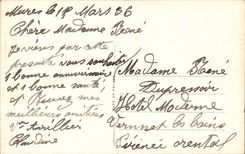 Mures le 18 Mars 36
Chère Madame René
je viens par cette
pensante vous souhaiter
1 bonne anniversaire
et 1 bonne santé,
et Recevez mes
meilleurs amitiés
Claudine
Madame René
Dupressoir
Hotel Moderne
Vernnet les bains
Pirenei orental